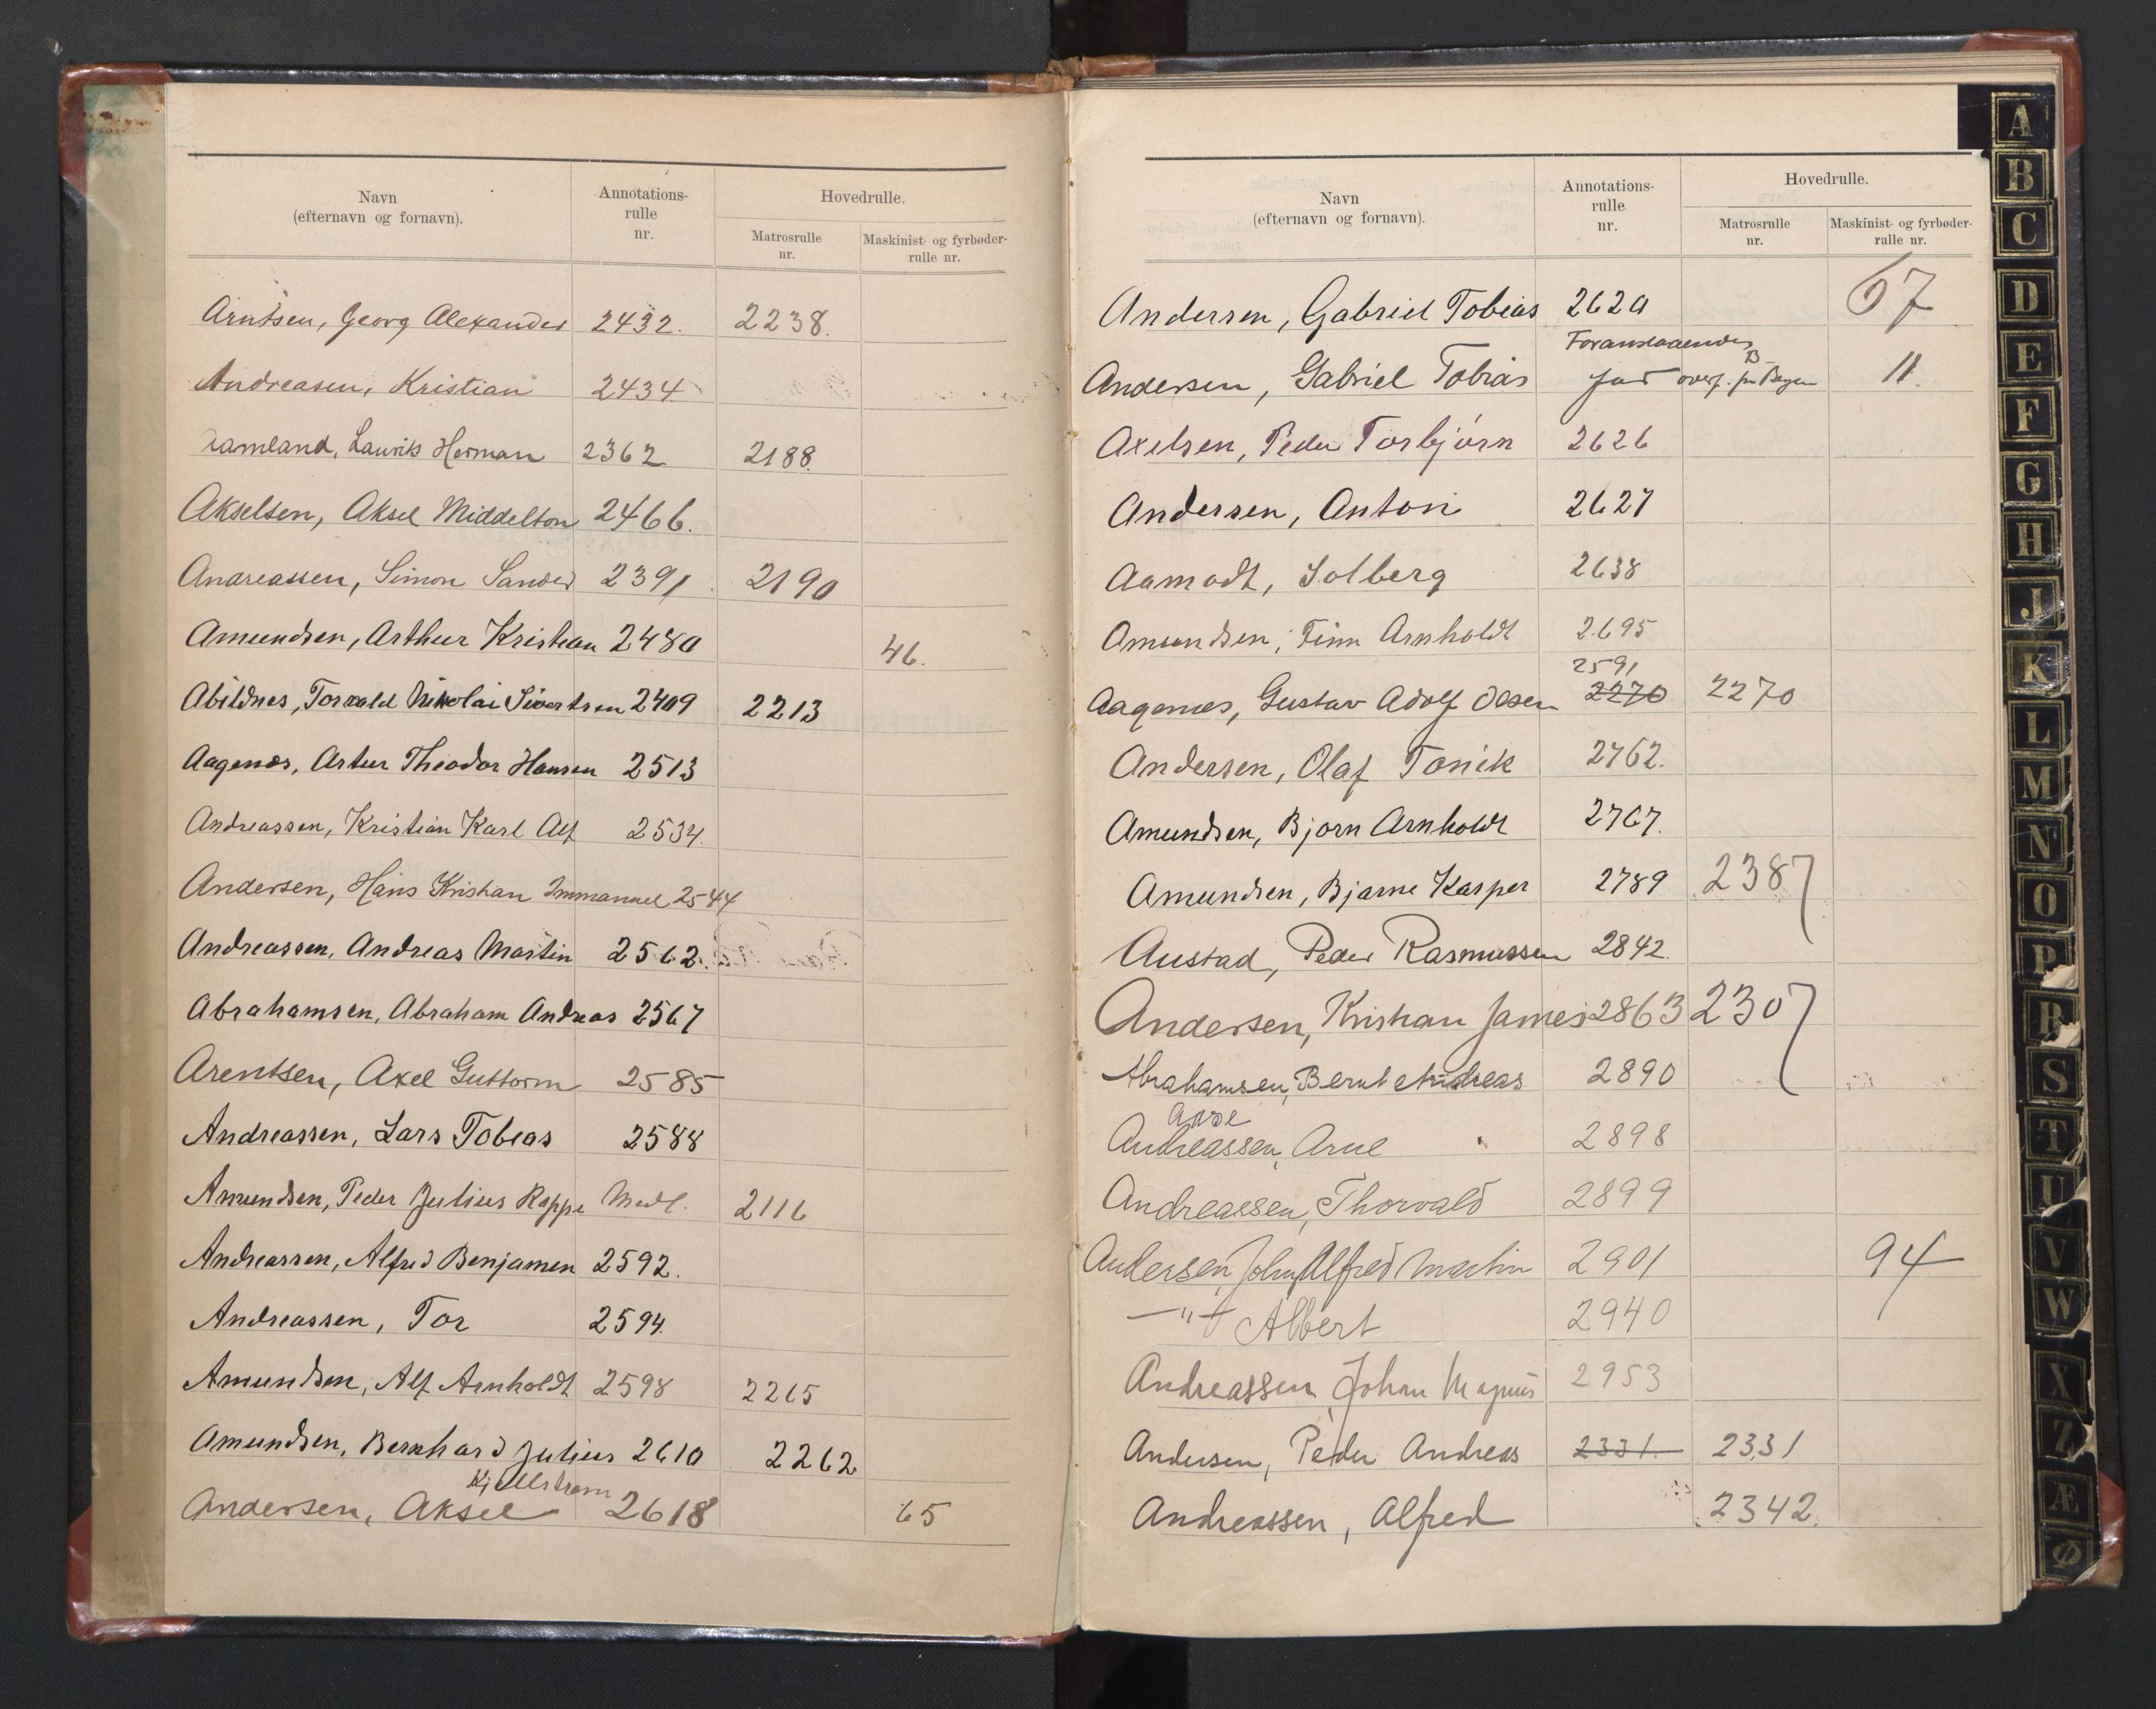 Navn
(efternavn og fornavn).
Annotations-
rulle
nr.
Hovedrulle.
Matrosrulle
nr.
Maskinist- og fyrbøder-
rulle nr.
Arntsen, Georg Alexander 2432. 2238.
Andreasen, Kristian 2434
Aamland, Laurits Herman 2362 2188.
Akselsen, Aksel Middelton 2466.
Andreassen, Simon Sander 2391 2190
Amundsen, Arthur Kristian 2480 46.
Abildnes, Torvald Nikolai Sivertsen 2409 2213
Aagenæs, Artur Theodor Hansen 2513
Andreassen, Kristian Karl Alf 2534.
Andersen, Hans Kristian Immanuel 2544
Andreassen, Andreas Martin 2562.
Abrahamsen, Abraham Andreas 2567
Arentsen, Axel Guttorm 2585
Andreassen, Lars Tobias 2588
Amundsen, Peder Julius Reppe Medl. 2116
Andreassen, Alfred Benjamen 2592.
Andreassen, Tor 2594.
Amundsen, Alf Arnholdt 2598 2265
Amundsen, Bernhard Julius 2610 2262
Kjellstrøm
Andersen, Aksel 2618 65
Navn
(efternavn og fornavn).
Annotations-
rulle
nr.
Hovedrulle.
Matrosrulle
nr.
Maskinist- og fyrbøder-
rulle nr.
Andersen, Gabriel Tobias 2620 67
Foranstaaendes
B-
Andersen, Gabriel Tobias far overf. fra Bergen 11.
Axelsen, Peder Torbjørn 2626
Andersen, Anton 2627
Aamodt, Solberg 2638
Amundsen, Finn Arnholdt 2695
2591
Aagenæs, Gustav Adolf Olsen 2270 2270
Andersen, Olaf Tonik 2762.
Amundsen, Bjorn Arnholdt 2767.
Amundsen, Bjarne Kasper 2789 2387
Austad, Peder Rasmussen 2842.
Andersen, Kristian James 2863 2307
Abrahamsen, Bernt Andreas 2890
Andreassen, Arne 2898
Andreassen, Thorvald 2899
Andersen, John Alfred Martin 2901 94
—"— Albert 2940
Andreassen, Johan Magnus 2953
Andersen, Peder Andreas 2331. 2331
Andreassen, Alfred 2342.
A
B
C
D
E
F
G
H
J
K
L
M
N
O
P
R
S
T
U
V
W
X
Z
Æ
Ø